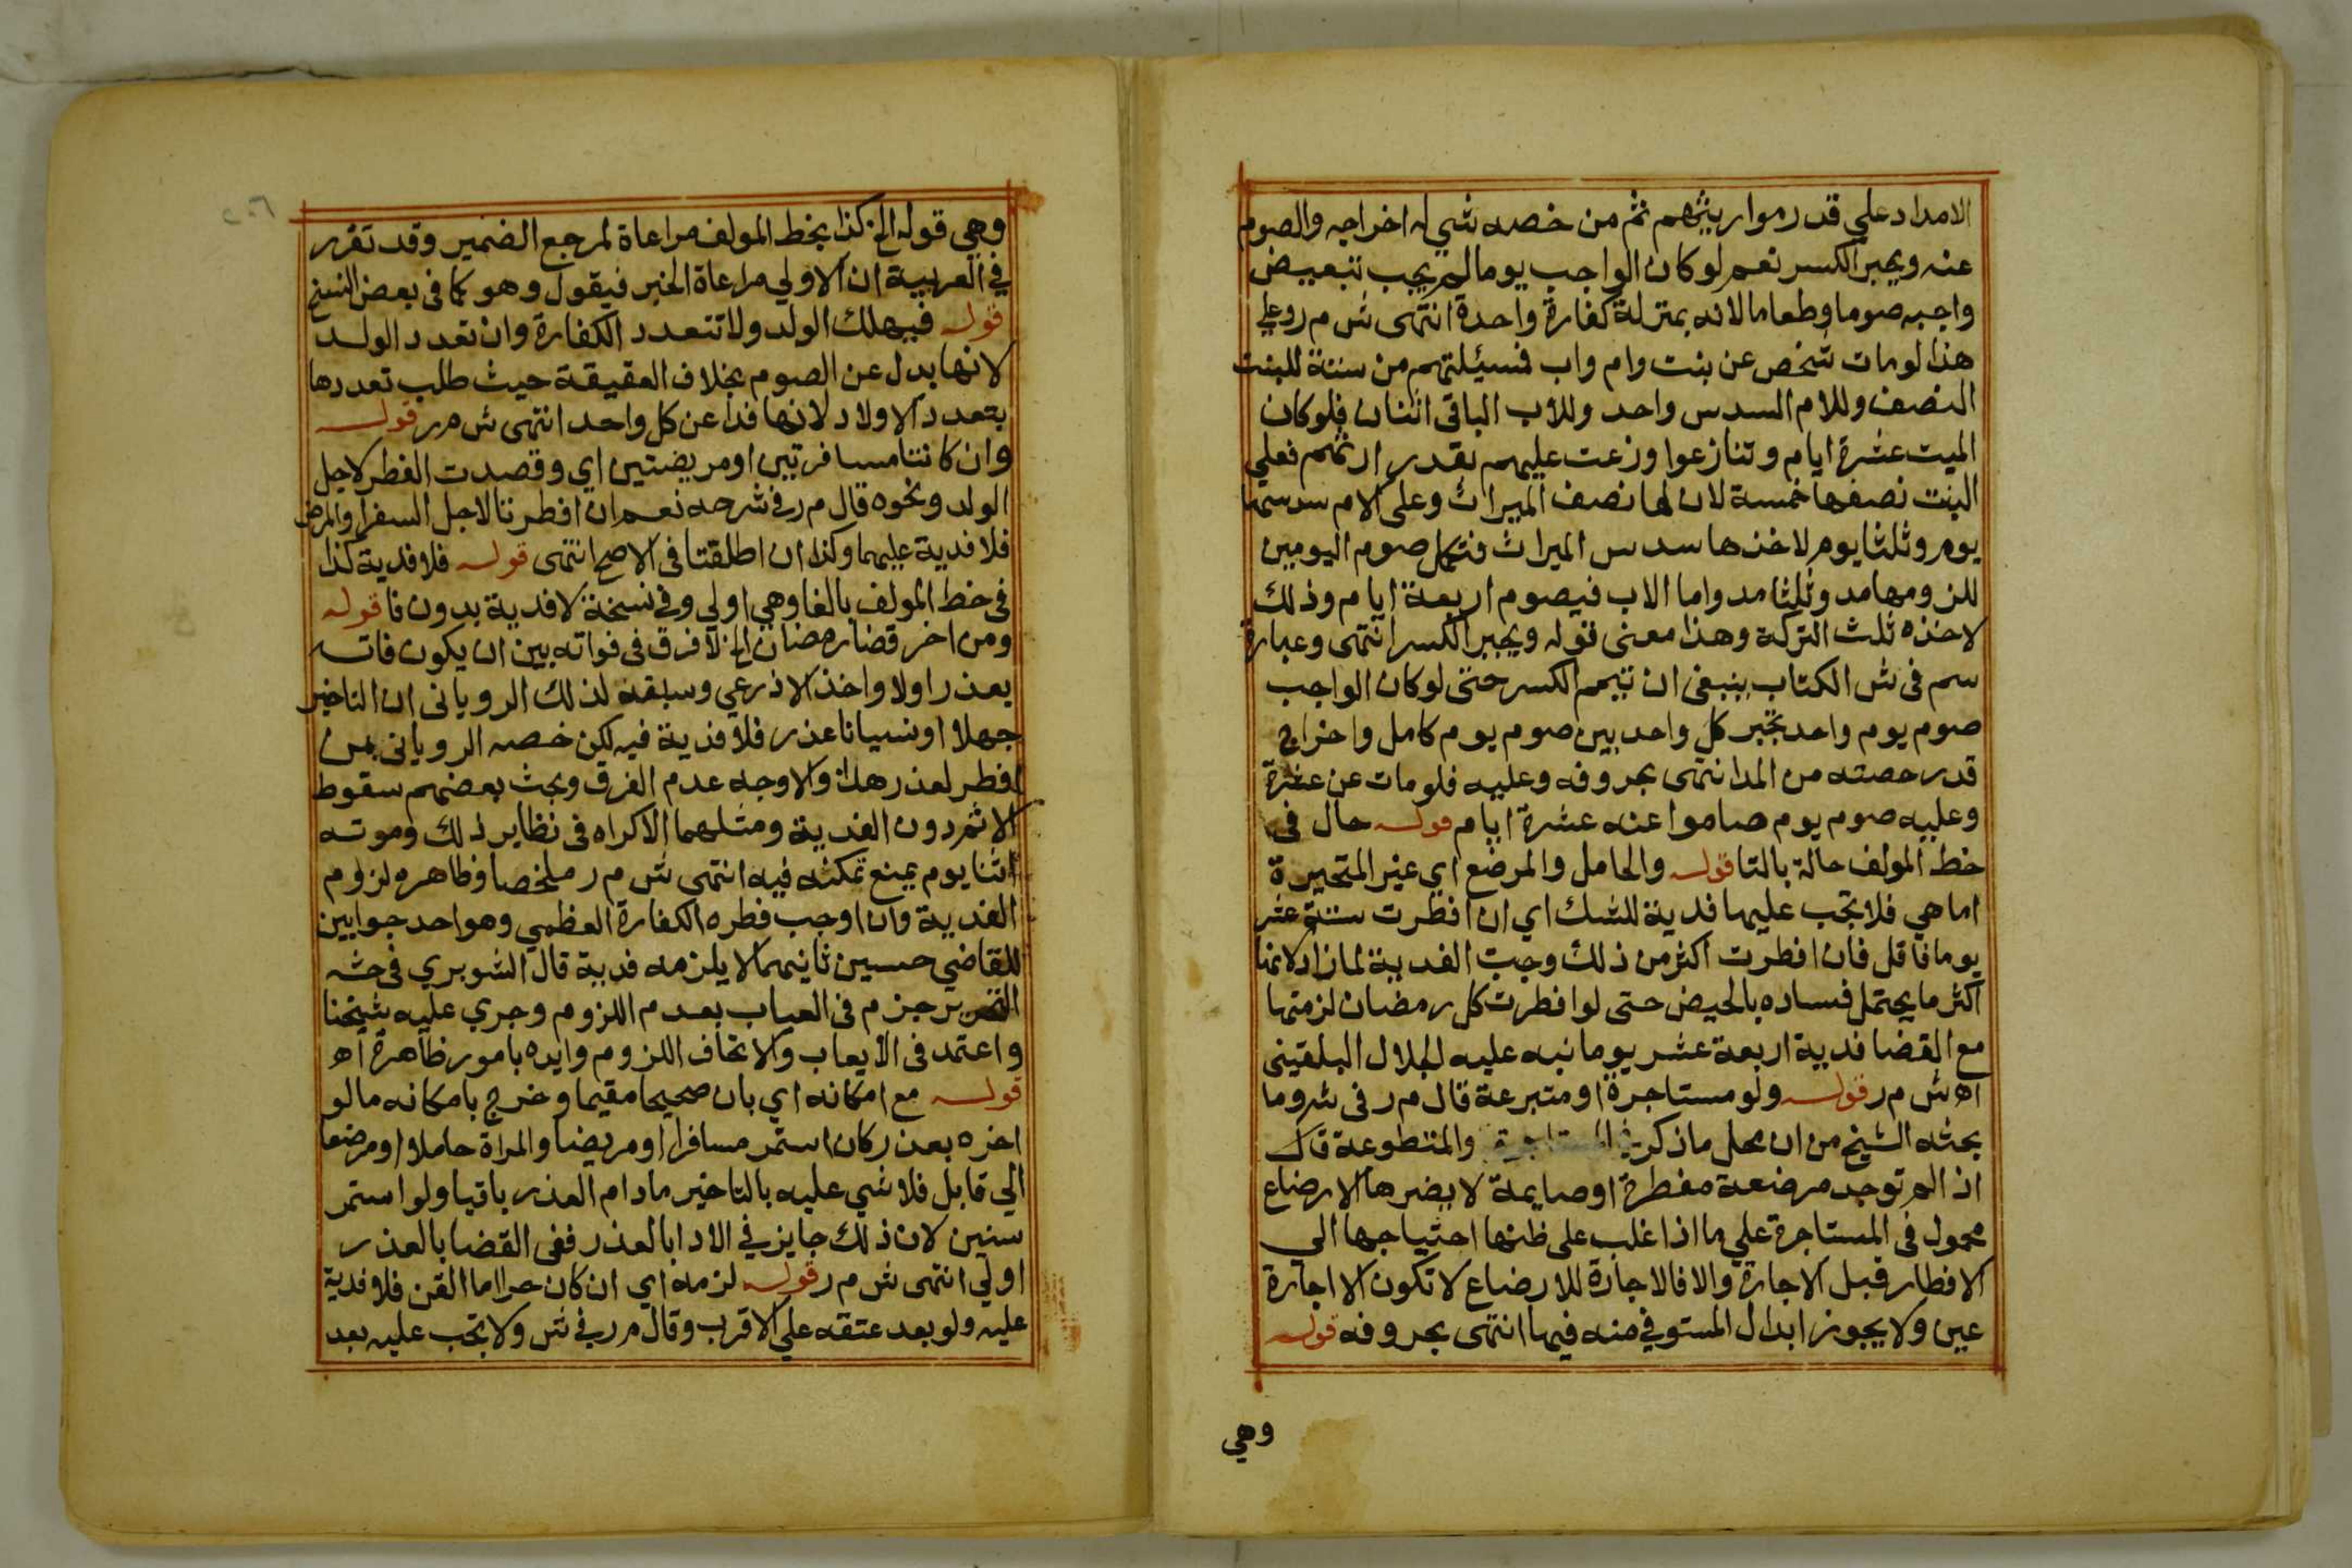 الامداد علي قدر مواريثهم ثم من خصه شي له اخراجه والصوم
عنه ويجبر الكسر نعم لو كان الواجب يوما لم يجب تبعيض
واجبه صوما وطعاما لانه بمنزلة كفارة واحدة انتهى ش م ر وعلي
هذا لو مات شخص عن بنت وام واب فسيئلتهم من ستة للبنت
النصف وللام السدس واحد وللاب الباقى اثنان فلو كان
الميت عشرة ايام وتنازعوا وزعت عليهم بقدر ارثهم فعلي
البنت نصفها خمسة لان لها نصف الميراث وعلى الام سدسها
يوم وثلثا يوم لاخذها سدس الميراث فتكمل صوم اليومين
للزومها مد وثلثا مد واما الاب فيصوم اربعة ايام وذلك
لاخذه ثلث التركة وهذا معنى قوله ويجبر الكسر انتهى وعبارة
سم فى ش الكتاب ينبغى ان تتمم الكسر حتى لو كان الواجب
صوم يوم واحد تخير كل واحد بين صوم يوم كامل واخراج
قدر حصته من المد انتهى بحروفه وعليه فلو مات عن عشرة
وعليه صوم يوم صاموا عنه عشرة ايام قوله حال فى
خط المولف حالة بالتا قوله والحامل والمرضع اي غير المتحيرة
اما هي فلا تجب عليها فدية للشك اي ان افطرت ستة عشر
يوما فاقل فان افطرت اكثر من ذلك وجبت الفدية لما زاد لانها
اكثر ما يحتمل فساده بالحيض حتى لو افطرت كل رمضان لزمتها
مع القضا فدية اربعة عشر يوما نبه عليه الجلال البلقينى
اه ش م ر قوله ولو مستاجرة او متبرعة قال م ر فى شر وما
بحثه الشيخ من ان محل ما ذكر فى المستاجرة والمتطوعة
اذا لم توجد مرضعة مفطرة او صايمة لا يضرها الارضاع
محمول فى المستاجرة علي ما اذا غلب على ظنها احتياجها الى
الافطار قبل الاجارة والا فالاجارة للارضاع لا تكون الا اجارة
عين ولا يجوز ابدال المستوفي منه فيها انتهى بحروفه قوله
وهي
وهي قوله الخ كذا بخط المولف مراعاة لمرجع الضمير وقد تقرر
في العربية ان الاولي مراعاة الخبر فيقول وهو كما فى بعض النسخ
قوله فيهلك الولد ولا تتعدد الكفارة وان تعدد الولد
لانها بدل عن الصوم بخلاف العقيقة حيث طلب تعددها
بتعدد الاولاد لانها فدا عن كل واحد انتهى ش م ر قوله
وان كانتا مسافرتين او مريضتين اي وقصدت الفطر لاجل
الولد ونحوه قال م ر فى شرحه نعم ان افطرتا لاجل السفر او المرض
فلا فدية عليهما وكذا ان اطلقتا فى الاصح انتهى قوله فلا فدية كذا
فى خط المولف بالفا وهي اولي وفي نسخة لا فدية بدون فا قوله
ومن اخر قضا رمضان الخ لا فرق فى فواته بين ان يكون فاته
بعذر اولا واخذ الاذرعي وسبقه لذلك الرويانى ان التاخير
جهلا او نسيانا عذر فلا فدية فيه لكن خصه الرويانى بمن
افطر لعذر والاوجه عدم الفرق وبحث بعضهم سقوط
الاثم دون الفدية ومثلهما الاكراه فى نظاير ذلك وموته
اثنا يوم يمنع تمكنه فيه انتهى ش م ر ملخصا وظاهره لزوم
الفدية وان اوجب فطره الكفارة العظمي وهو احد جوابين
للقاضي حسين ثانيهما لا يلزمه فدية قال الشوبري فى حشه
التحرير جزم فى العباب بعدم اللزوم وجري عليه شيخنا
واعتمد فى الايعاب والاتحاف اللزوم وايده بامور ظاهرة اه
قوله مع امكانه اي بان صحيحا مقيما وخرج بامكانه ما لو
اخره بعذر كان استمر مسافرا او مريضا والمراة حاملا او مرضعا
الي قابل فلا شي عليه بالتاخير ما دام العذر باقيا ولو استمر
سنين لان ذلك جايز في الادا بالعذر ففى القضا بالعذر
اولي انتهى ش م ر قوله لزمه اي ان كان حرا اما القن فلا فدية
عليه ولو بعد عتقه علي الاقرب وقال م ر في ش ولا تجب عليه بعد